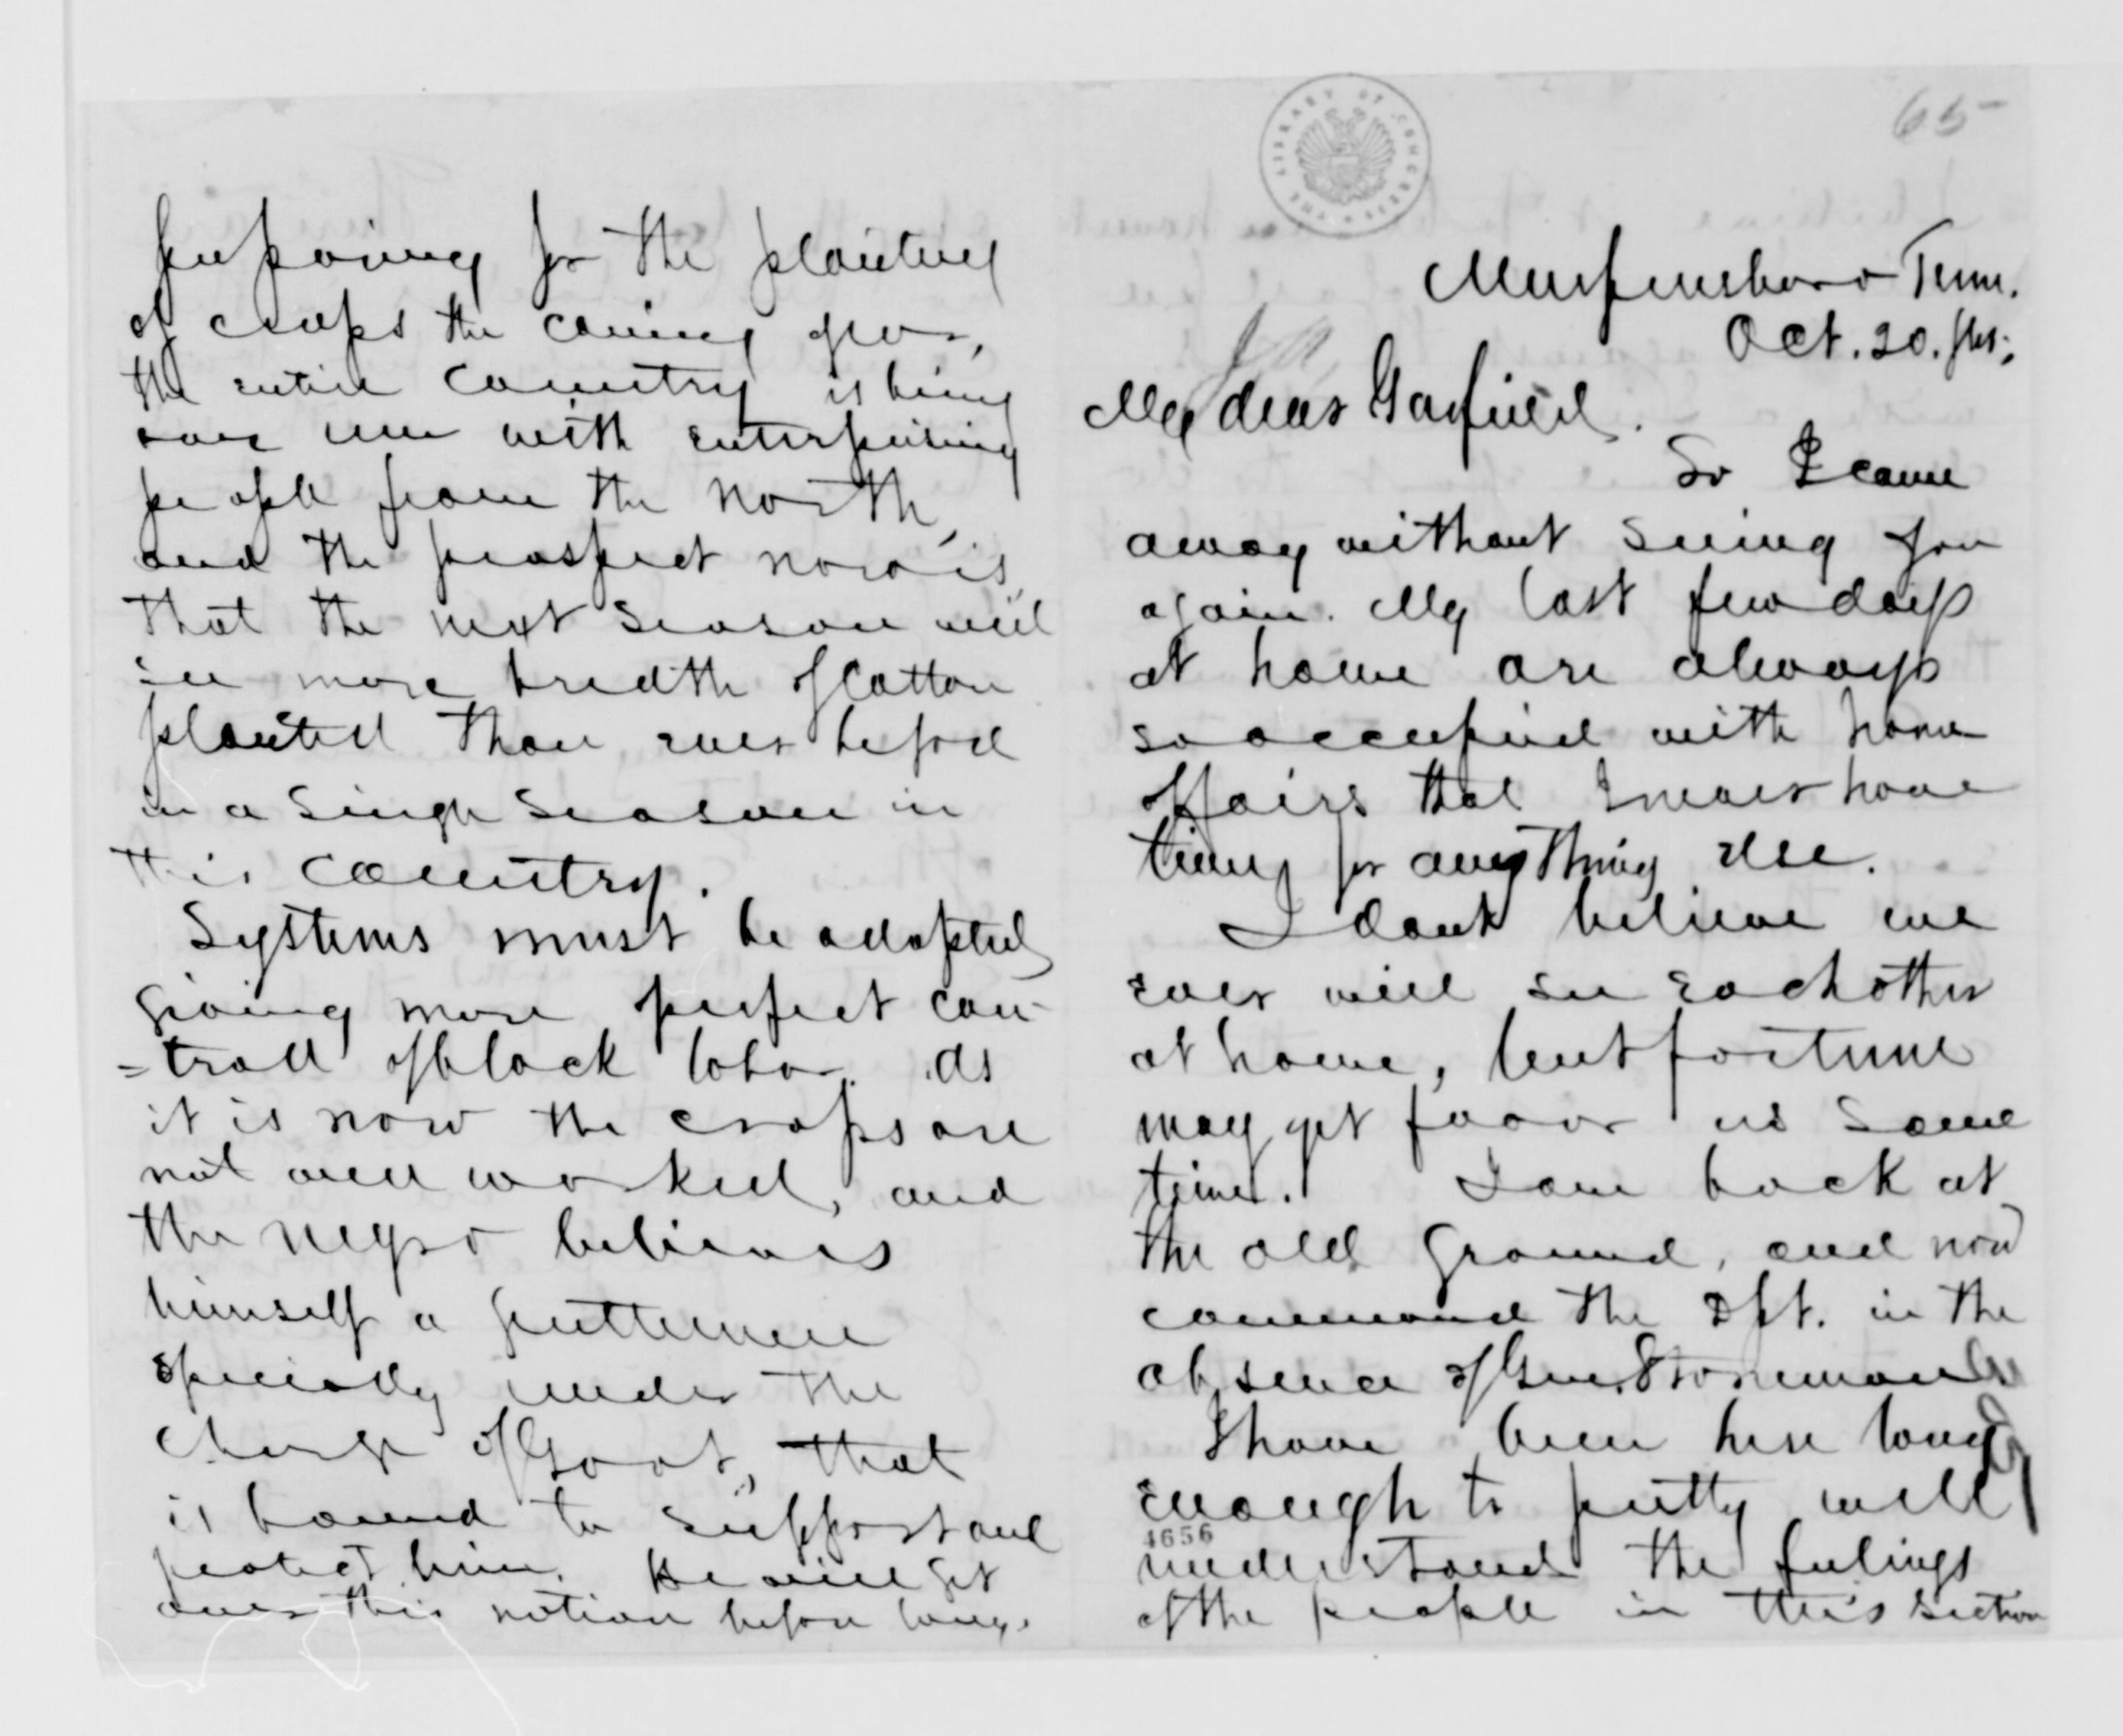 65
THE LIBRARY OF CONGRESS
Murfreesboro Tenn.
Oct. 20. /65.
My dear Garfield.
So I came
away without seeing you
again. My last few days
at home are always
so occupied with home
affairs that I never have
time for anything else.
I dont believe we
ever will see each other
at home, but fortune
may yet favor us some
time. I am back at
the old ground, and now
command the Dpt. in the
absence of Gen. Stoneman.
I have been here long
enough to pretty well
4656
understand the feelings
of the people in this section
preparing for the planting
of crops the coming year,
the entire country is being
over run with enterprising
people from the North,
and the prospect now is,
that the next season will
see more bredth of Cotton
planted than ever before
in a single season in
this country.
Systems must be adopted
giving more perfect con-
=troll of black labor. As
it is now the crops are
not well worked, and
the negro believes
himself a gentleman
specially under the
charge of Govt, that
is bound to support and
protect him. He will get
over this notion before long.